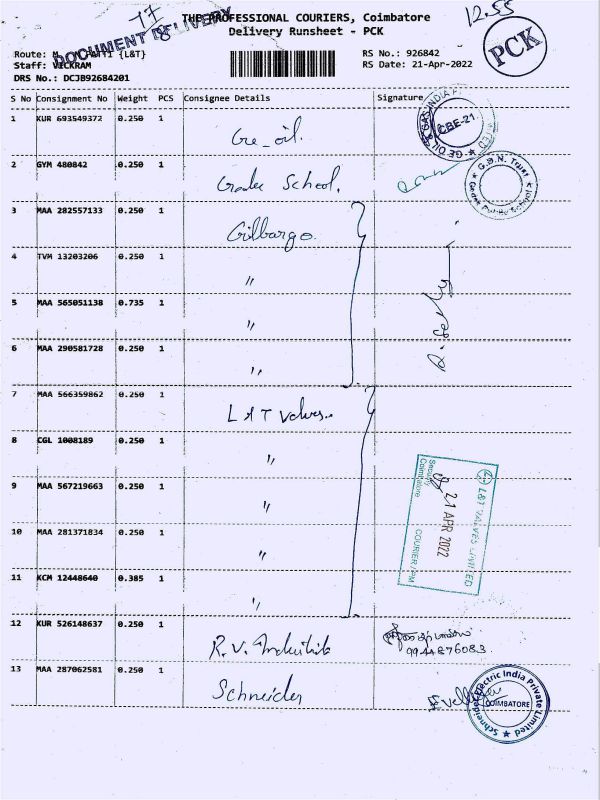 THE PROFESSIONAL COURIERS, Coimbatore
Delivery Runsheet - PCK
DOCUMENT DELIVERY
12.55
PCK
Route: {L&T}
Staff: VICKRAM
DRS No.: DCJB92684201
RS No.: 926842
RS Date: 21-Apr-2022
S No Consignment No Weight PCS Consignee Details Signature
1 KUR 693549372 0.250 1 Ge_oil.
CBE-21
2 GYM 480842 0.250 1 School.
G.B.N. Trust
3 MAA 282557133 0.250 1 Gilbargo.
4 TVM 13203206 0.250 1 "
5 MAA 565051138 0.735 1 "
6 MAA 290581728 0.250 1 "
7 MAA 566359862 0.250 1 L&T Valves..
8 CGL 1008189 0.250 1 "
9 MAA 567219663 0.250 1 "
10 MAA 281371834 0.250 1 "
11 KCM 12448640 0.385 1 "
L&T VALVES LIMITED
21 APR 2022
COURIER
Security
Coimbatore
12 KUR 526148637 0.250 1 R.V.
9944876083
13 MAA 287062581 0.250 1 Schneider
Schneider Electric India Private Limited
COIMBATORE